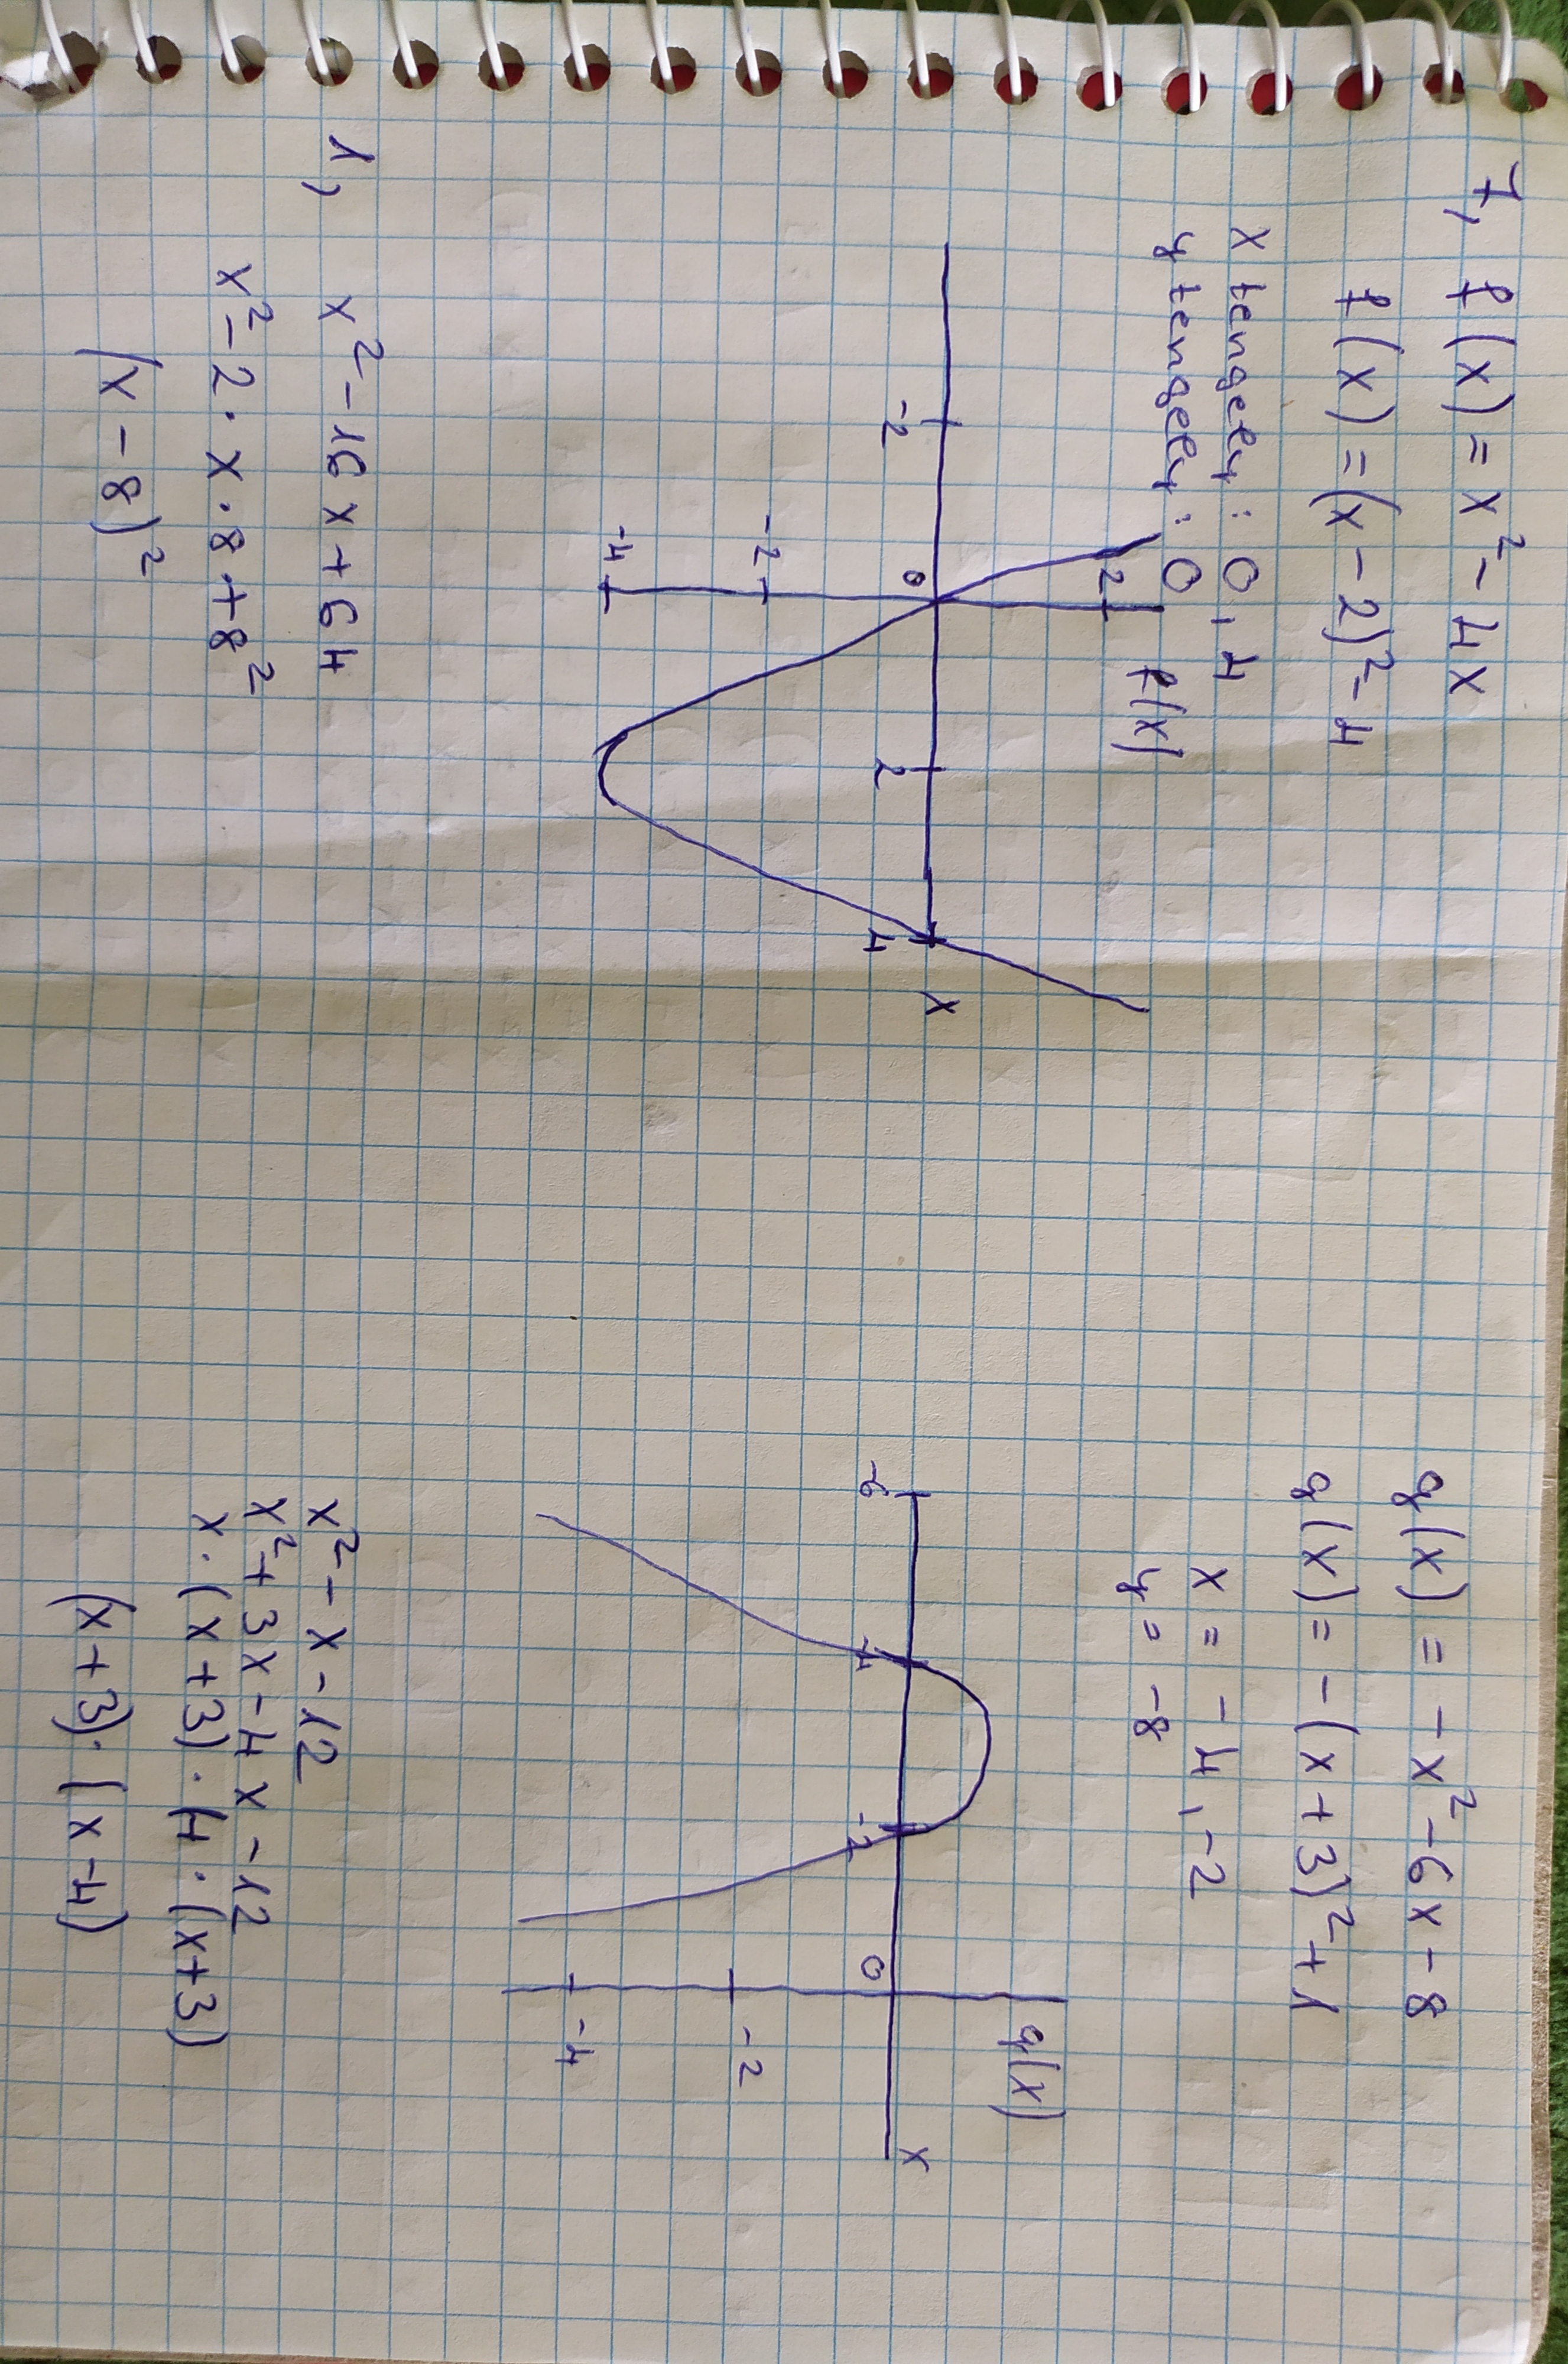 7, f(x) = x² - 4x
f(x) = (x - 2)² - 4
x tengely: 0, 4
y tengely: 0
f(x)
2
-2
0
2
4
x
-2
-4
g(x) = -x² - 6x - 8
g(x) = -(x + 3)² + 1
x = -4, -2
y = -8
g(x)
-6
-4
-2
0
x
-2
-4
1, x² - 16x + 64
x² - 2 · x · 8 + 8²
(x - 8)²
x² - x - 12
x² + 3x - 4x - 12
x · (x + 3) · (4 · (x + 3)
(x + 3) · (x - 4)